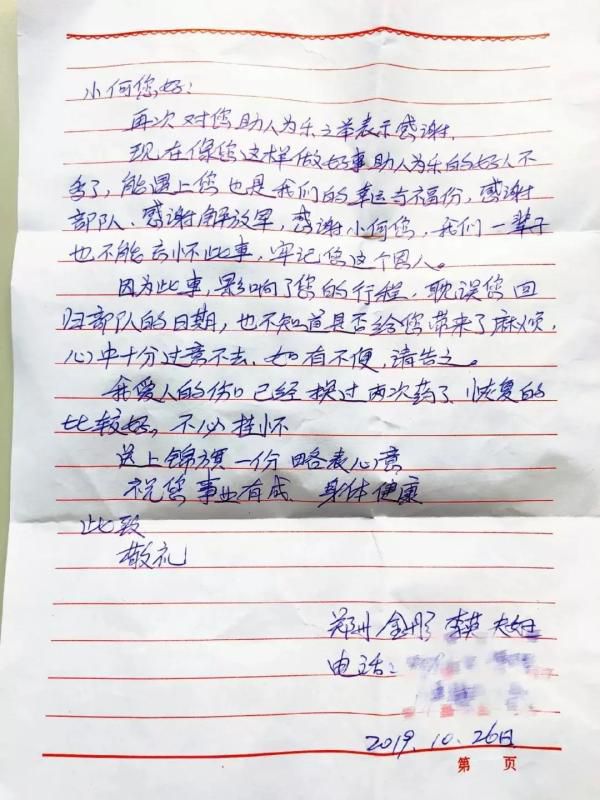 小何您好：
再次对您助人为乐之举表示感谢.
现在像您这样做好事助人为乐的好人不
多了，能遇上您也是我们的幸运与福份，感谢
部队、感谢解放军，感谢小何您，我们一辈子
也不能忘怀此事，牢记您这个恩人。
因为此事，影响了您的行程，耽误您回
归部队的日期，也不知道是否给您带来了麻烦，
心中十分过意不去、如有不便，请告之。
我爱人的伤口已经换过两次药了、恢复的
比较好。不必挂怀
送上锦旗一份 略表心意
祝您事业有成 身体健康
此致
敬礼
郑州 金彤 李英 夫妇
电话：
2019.10.26日
第 页